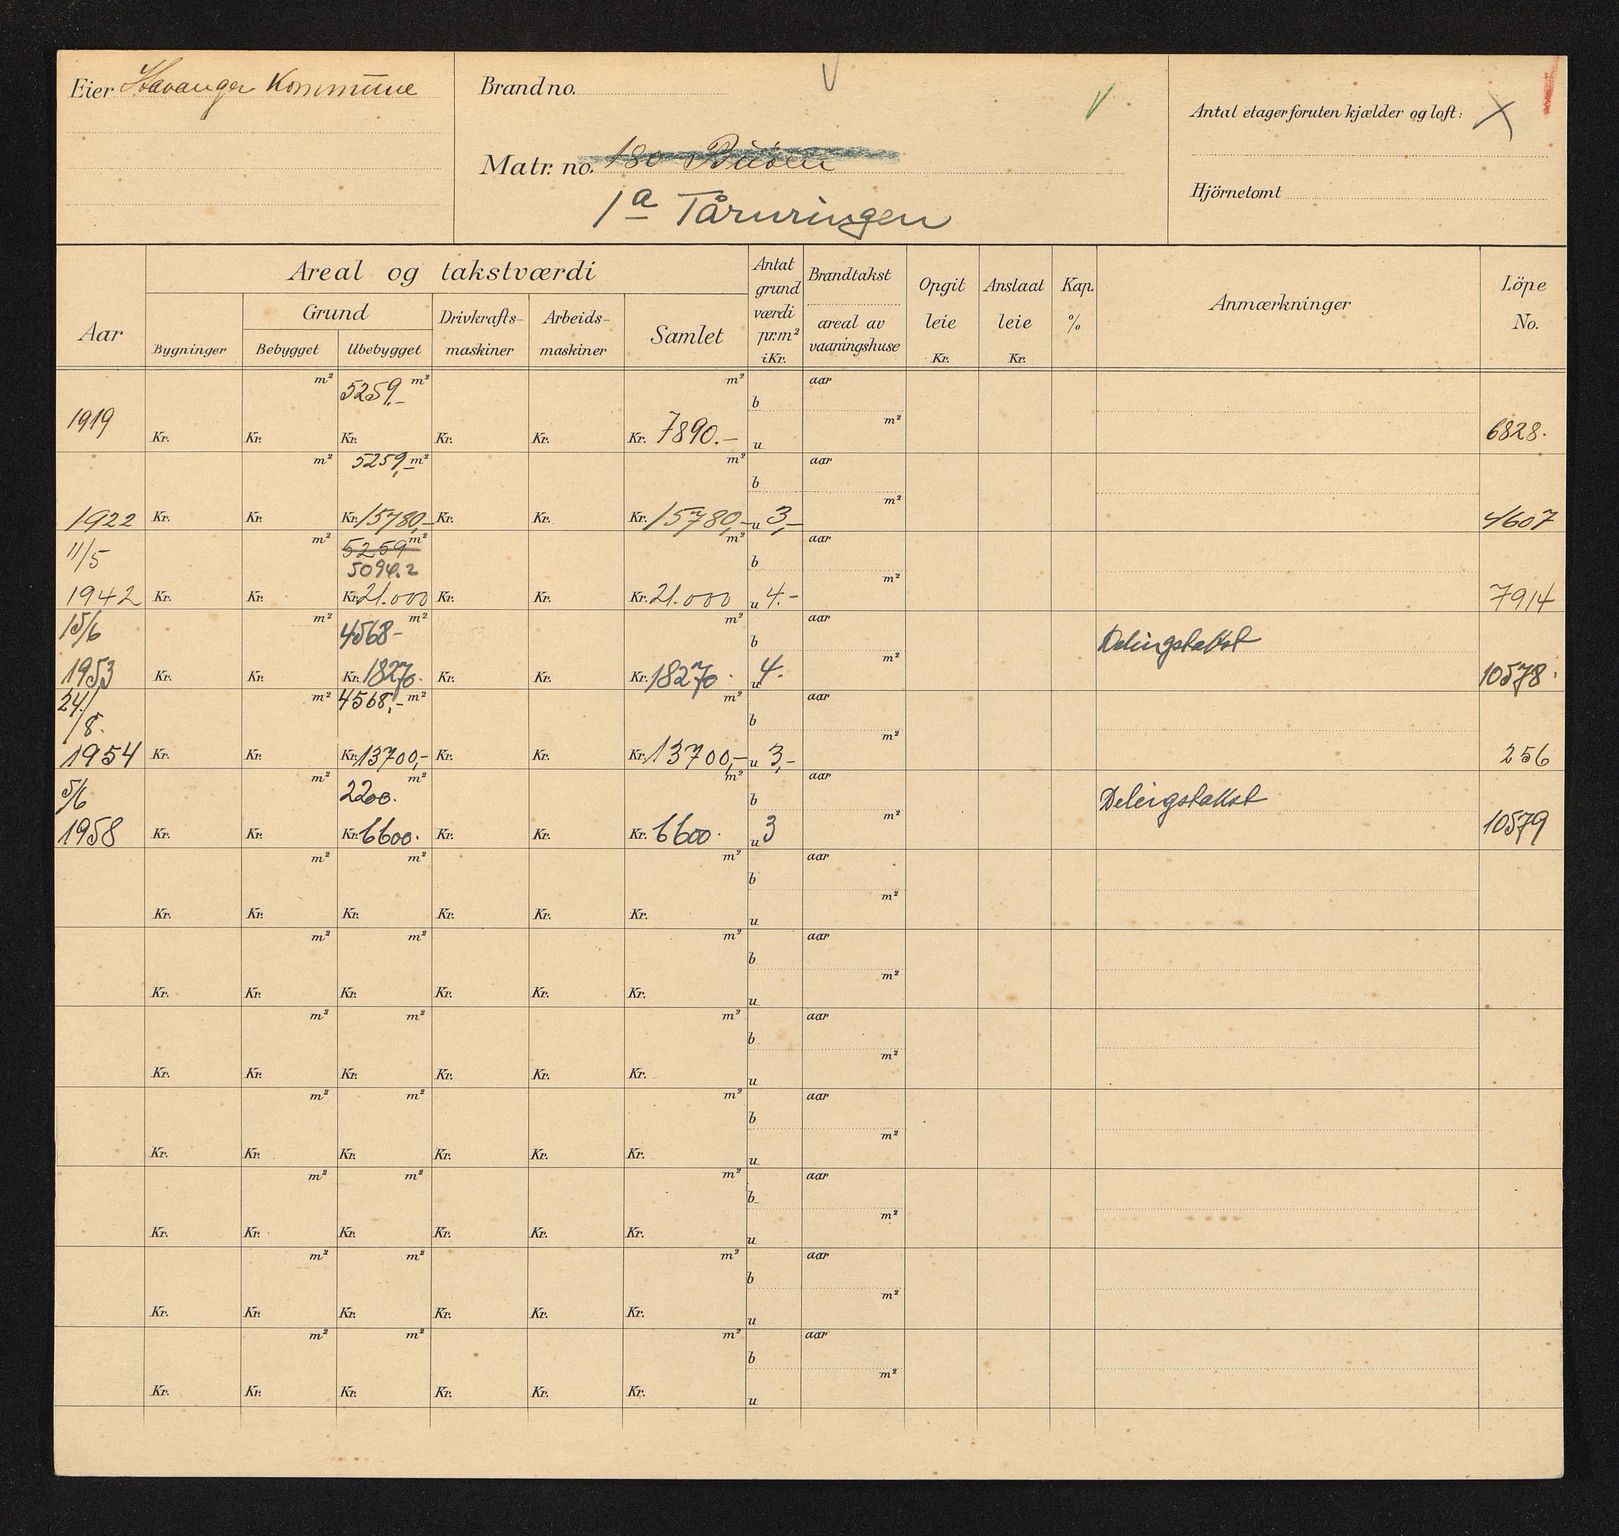 Eier Stavanger Kommune
Brand no.
Matr. no. 180 Buöen
1a Tårnringen
Antal etager foruten kjælder og loft: X
Hjörnetomt
Aar
Areal og takstværdi
Grund
Bygninger
Bebygget
Ubebygget
Drivkrafts-
maskiner
Arbeids-
maskiner
Samlet
Antat
grund
værdi
pr. m²
i Kr.
Brandtakst
areal av
vaaningshuse
Opgit
leie
Kr.
Anslaat
leie
Kr.
Kap.
%
Anmærkninger
Löpe
No.
m² 5259.- m² m² aar
b
m²
1919 Kr. Kr. Kr. Kr. Kr. Kr. 7890.- u 6828.
m² 5259,- m² m² aar
b
m²
1922 Kr. Kr. Kr. 15780,- Kr. Kr. Kr. 15780,- u 3,- 4607
11/5 m² 5259 m² m² aar
5094.2 b
m²
1942 Kr. Kr. Kr. 21.000 Kr. Kr. Kr. 21.000 u 4.- 7914
15/6 m² 4568- m² m² aar
b Delingstakst
m²
1953 Kr. Kr. Kr. 18270. Kr. Kr. Kr. 18270. u 4. 10578.
24/8. m² 4568,- m² m² aar
b
m²
1954 Kr. Kr. Kr. 13700,- Kr. Kr. Kr. 13700,- u 3,- 256
5/6 m² 2200. m² m² aar
b Delingstakst
m²
1958 Kr. Kr. Kr. 6600. Kr. Kr. Kr. 6600. u 3 10579
m² m² m² aar
b
m²
Kr. Kr. Kr. Kr. Kr. Kr. u
m² m² m² aar
b
m²
Kr. Kr. Kr. Kr. Kr. Kr. u
m² m² m² aar
b
m²
Kr. Kr. Kr. Kr. Kr. Kr. u
m² m² m² aar
b
m²
Kr. Kr. Kr. Kr. Kr. Kr. u
m² m² m² aar
b
m²
Kr. Kr. Kr. Kr. Kr. Kr. u
m² m² m² aar
b
m²
Kr. Kr. Kr. Kr. Kr. Kr. u
m² m² m² aar
b
m²
Kr. Kr. Kr. Kr. Kr. Kr. u